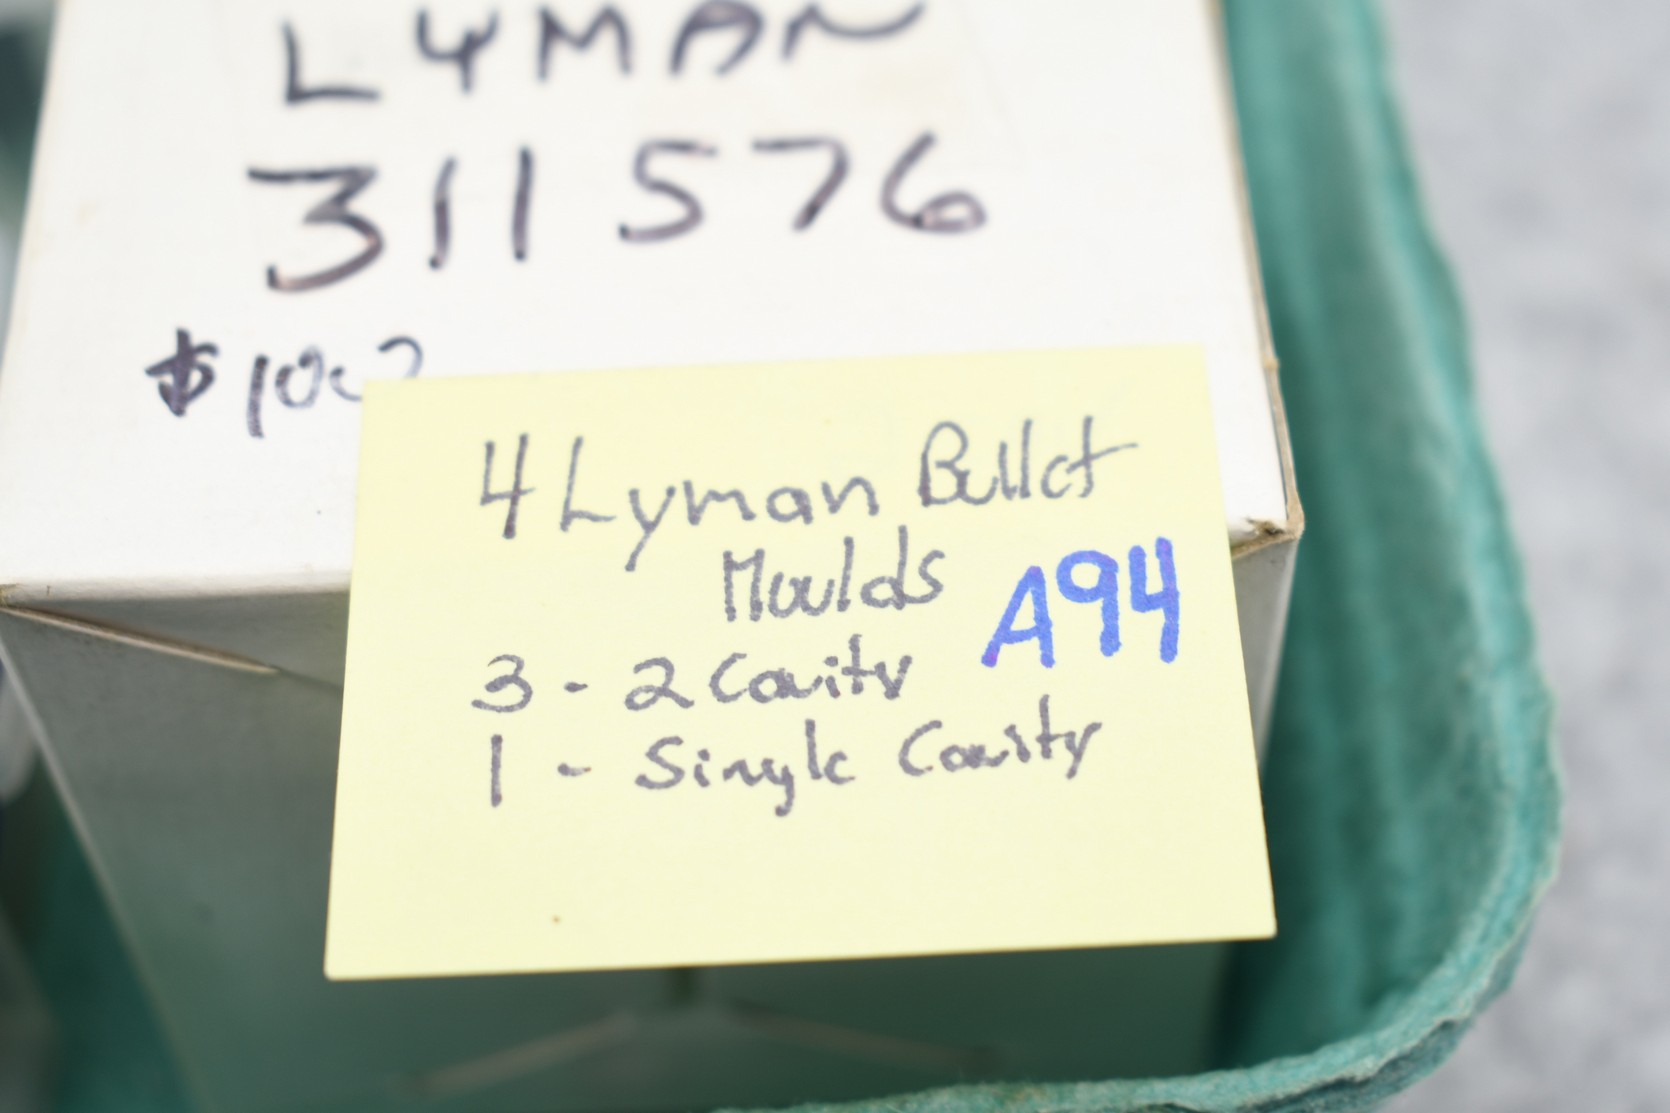 LYMAN
311 576
$100
4 Lyman Bullet
Moulds
A94
3 - 2 Cavity
1 - Single Cavity